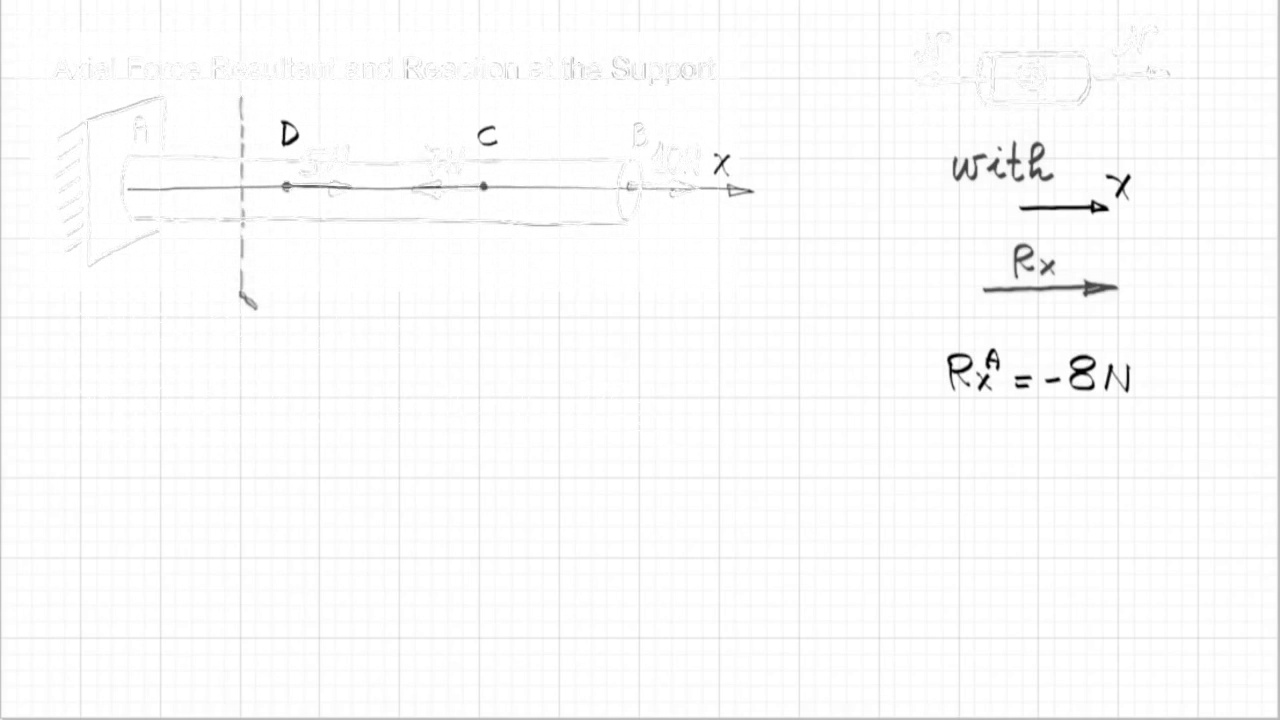 Axial Force Resultant and Reaction at the Support
A
D
5N
7N
C
B
10N
X
N
N
with
X
Rx
Rx^A = -8N